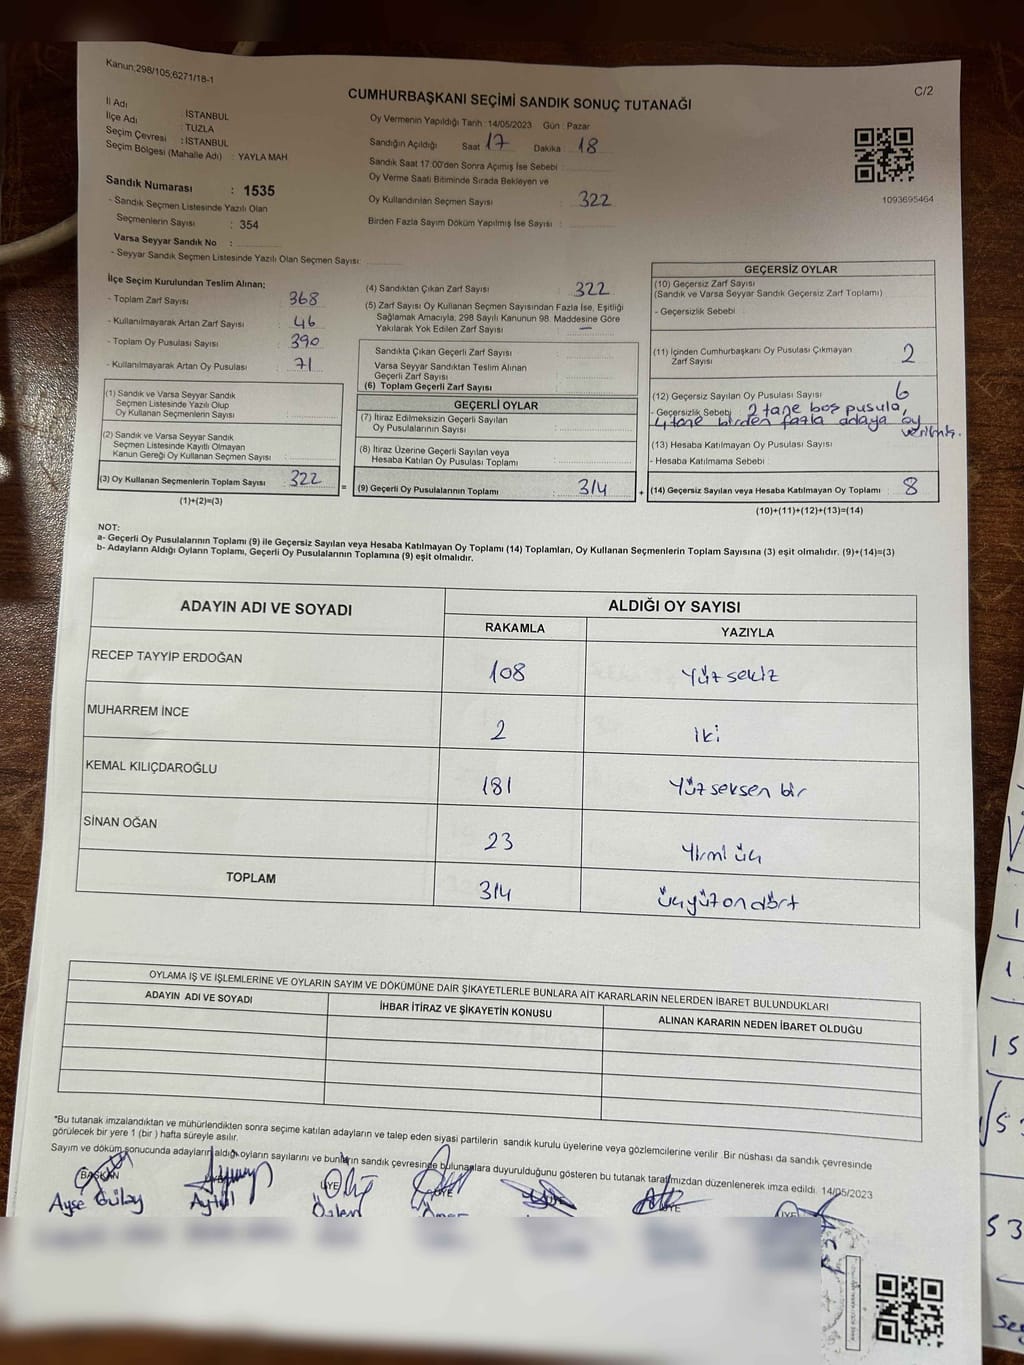 Kanun;298/105;6271/18-1
C/2
CUMHURBAŞKANI SEÇİMİ SANDIK SONUÇ TUTANAĞI
İl Adı : İSTANBUL
İlçe Adı : TUZLA
Seçim Çevresi : İSTANBUL
Seçim Bölgesi (Mahalle Adı) : YAYLA MAH
Sandık Numarası : 1535
- Sandık Seçmen Listesinde Yazılı Olan
Seçmenlerin Sayısı : 354
Varsa Seyyar Sandık No :
- Seyyar Sandık Seçmen Listesinde Yazılı Olan Seçmen Sayısı:
Oy Vermenin Yapıldığı Tarih :14/05/2023 Gün : Pazar
Sandığın Açıldığı Saat 17 Dakika : 18
Sandık Saat 17:00'den Sonra Açımış İse Sebebi :
Oy Verme Saati Bitiminde Sırada Bekleyen ve
Oy Kullandırılan Seçmen Sayısı : 322
Birden Fazla Sayım Döküm Yapılmış İse Sayısı :
1093695464
İlçe Seçim Kurulundan Teslim Alınan;
- Toplam Zarf Sayısı : 368
- Kullanılmayarak Artan Zarf Sayısı : 46
- Toplam Oy Pusulası Sayısı : 390
- Kullanılmayarak Artan Oy Pusulası : 71
(1) Sandık ve Varsa Seyyar Sandık
Seçmen Listesinde Yazılı Olup
Oy Kullanan Seçmenlerin Sayısı :
(2) Sandık ve Varsa Seyyar Sandık
Seçmen Listesinde Kayıtlı Olmayan
Kanun Gereği Oy Kullanan Seçmen Sayısı :
(3) Oy Kullanan Seçmenlerin Toplam Sayısı : 322
(1)+(2)=(3)
(4) Sandıktan Çıkan Zarf Sayısı : 322
(5) Zarf Sayısı Oy Kullanan Seçmen Sayısından Fazla İse, Eşitliği
Sağlamak Amacıyla; 298 Sayılı Kanunun 98. Maddesine Göre
Yakılarak Yok Edilen Zarf Sayısı : —
Sandıkta Çıkan Geçerli Zarf Sayısı :
Varsa Seyyar Sandıktan Teslim Alınan
Geçerli Zarf Sayısı :
(6) Toplam Geçerli Zarf Sayısı :
GEÇERLİ OYLAR
(7) İtiraz Edilmeksizin Geçerli Sayılan
Oy Pusulalarının Sayısı :
(8) İtiraz Üzerine Geçerli Sayılan veya
Hesaba Katılan Oy Pusulası Toplamı :
= (9) Geçerli Oy Pusulalarının Toplamı : 314
GEÇERSİZ OYLAR
(10) Geçersiz Zarf Sayısı
(Sandık ve Varsa Seyyar Sandık Geçersiz Zarf Toplamı) :
- Geçersizlik Sebebi :
(11) İçinden Cumhurbaşkanı Oy Pusulası Çıkmayan
Zarf Sayısı : 2
(12) Geçersiz Sayılan Oy Pusulası Sayısı : 6
- Geçersizlik Sebebi : 2 tane boş pusula,
4 tane birden fazla adaya oy
verilmiş.
(13) Hesaba Katılmayan Oy Pusulası Sayısı :
- Hesaba Katılmama Sebebi :
+ (14) Geçersiz Sayılan veya Hesaba Katılmayan Oy Toplamı : 8
(10)+(11)+(12)+(13)=(14)
NOT:
a- Geçerli Oy Pusulalarının Toplamı (9) ile Geçersiz Sayılan veya Hesaba Katılmayan Oy Toplamı (14) Toplamları, Oy Kullanan Seçmenlerin Toplam Sayısına (3) eşit olmalıdır. (9)+(14)=(3)
b- Adayların Aldığı Oyların Toplamı, Geçerli Oy Pusulalarının Toplamına (9) eşit olmalıdır.
ADAYIN ADI VE SOYADI ALDIĞI OY SAYISI
RAKAMLA YAZIYLA
RECEP TAYYİP ERDOĞAN 108 Yüz sekiz
MUHARREM İNCE 2 iki
KEMAL KILIÇDAROĞLU 181 Yüz seksen bir
SİNAN OĞAN 23 Yirmi üç
TOPLAM 314 üçyüz on dört
OYLAMA İŞ VE İŞLEMLERİNE VE OYLARIN SAYIM VE DÖKÜMÜNE DAİR ŞİKAYETLERLE BUNLARA AİT KARARLARIN NELERDEN İBARET BULUNDUKLARI
ADAYIN ADI VE SOYADI İHBAR İTİRAZ VE ŞİKAYETİN KONUSU ALINAN KARARIN NEDEN İBARET OLDUĞU
*Bu tutanak imzalandıktan ve mühürlendikten sonra seçime katılan adayların ve talep eden siyasi partilerin sandık kurulu üyelerine veya gözlemcilerine verilir. Bir nüshası da sandık çevresinde
görülecek bir yere 1 (bir) hafta süreyle asılır.
Sayım ve döküm sonucunda adayların aldığı oyların sayılarını ve bunların sandık çevresinde bulunanlara duyurulduğunu gösteren bu tutanak tarafımızdan düzenlenerek imza edildi. 14/05/2023
BAŞKAN ÜYE ÜYE ÜYE ÜYE
Ayşe Gülay Aytül Özlem Ömer
15
53